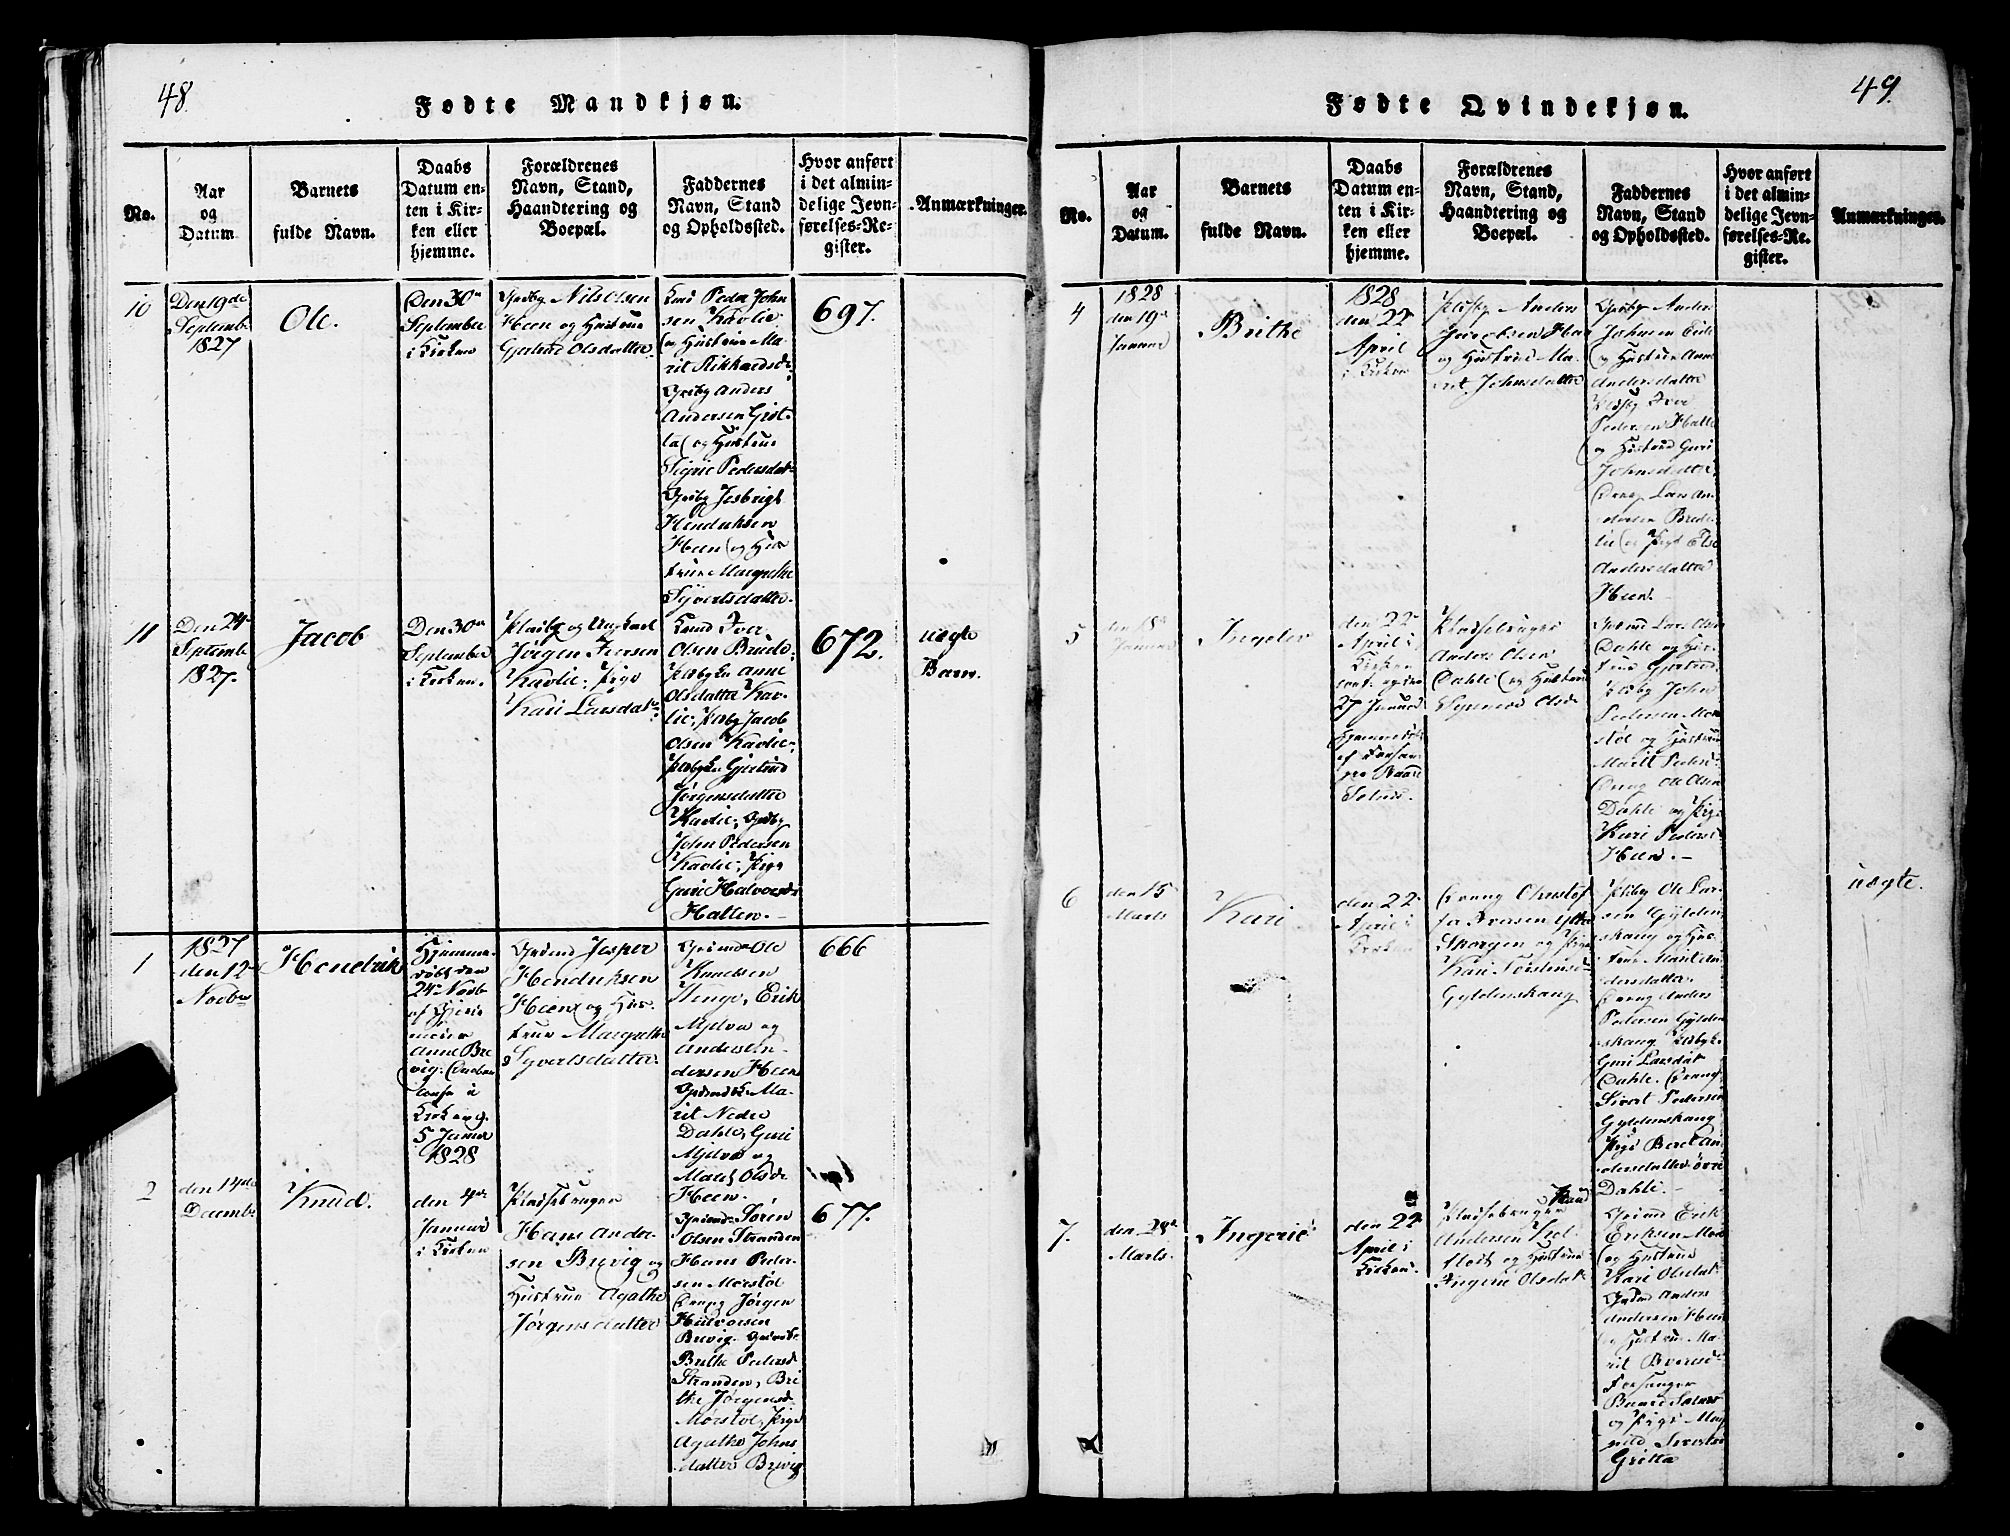 48.
Fødte Mandkjøn.
No.
Aar
og
Datum.
Barnets
fulde Navn.
Daabs
Datum en-
ten i Kir-
ken eller
hjemme.
Forældrenes
Navn, Stand,
Haandtering og
Boepæl.
Faddernes
Navn, Stand
og Opholdssted.
Hvor anført
i det almin-
delige Jevn-
førelses-Re-
gister.
Anmærkninger.
10
Den 19de
Septembr
1827
Ole.
Den 30te
September
i Kirken
Nils Olsen
Heen og Hustrue
Gjertrud Olsdatter
Peder John
sen Kavlie
og Hustrue Ma-
rit Rikhardsd:
Grdbg Anders
Andersen Grit-
ta og Hustrue
Sigrie Pedersdat-
Grdbg Jesbrigt
Hendriksen
Heen og Hus
true Margrethe
Syvertsdatter.
697.
11
Den 24de
Septembr
1827.
Jacob
Den 30te
September
i Kirken.
Pladsbg og Ungkarl
Jørgen Iversen
Kavlie; Pige
Kari Larsdatr:
Iver
Olsen Brude;
Anne
Olsdatter Kav-
lie; Jacob
Olsen Kavlie;
Gjertrud
Jørgensdatter
Kavlie; Grdbg
John Pedersen
Kavlie; Pige
Guri Halvorsdr
Hatten.
672.
uægte
Barn.
1
1827
den 12te
Novbr
Hendrik
Hjemme-
døbt den
24de Novb
af
Anne Bre
vig.
i
Kirken d.
5 Januar
1828
Jesper
Hendriksen
Heen og Hus-
true Margrethe
Syvertsdatter.
Ole
Knudsen
Stenge, Erik
Mjelva og
Anders An-
dersen Heen
Ma-
rit Nedre
Dahle, Guri
Mjelva og
Marit Olsdr
Heen.
666
2
den 14de
Decembr
Knud.
den 4de
Januar
i Kirken
Pladsebruger
Hans Ander
sen Brevig og
Hustrue Agathe
Jørgensdatter
Søren
Olsen Stranden
Hans Peder
sen Morstøl
Jørgen
Halvorsen
Brevig.
Brithe Pedersd
Stranden, Bri
the Jørgensd
Morstøl, Pige
Agathe Johns
datter Brevig
677.
49.
Fødte Qvindekjøn.
No.
Aar
og
Datum.
Barnets
fulde Navn.
Daabs
Datum en-
ten i Kir-
ken eller
hjemme.
Forældrenes
Navn, Stand,
Haandtering og
Boepæl.
Faddernes
Navn, Stand
og Opholdssted.
Hvor anført
i det almin-
delige Jevn-
førelses-Re-
gister.
Anmærkninger.
4
1828
den 19de
Januar
Brithe
1828
den 22de
April
i Kirken
Anders
og Hustrue Ma-
rit Johnsdatter
Grdbg Anders
Johnsen
og Hustrue Anne
Andersdatter
Iver
Pedersen Hatte
og Hustrue Guri
Johnsdatter
Lars An-
dersen Brude-
lie og Pige Else
Andersdatter
Heen.
5
den 18de
Januar
Ingeler
den 22de
April i
Kirken
27 Januar
Hjemmedøbt
af Forsan-
ger Baard
Solnes.
Pladsebruger
Anders Olsen
Dahle og Hustrue
Olsdr
Lars Olsen
Dahle og Hus-
true Gjertrud
John
Pedersen Mor
støl og Hustrue
Marit Pedersd
Ole Olsen
Dahle og Pige
Kari Pedersd
Heen.
6
den 15de
Marts
Kari
den 22de
April i
Kirken
Christof
fer Iversen Ytre
Skorgen og Pige
Kari Torstensd
Gyldenskaug
Ole Lar-
sen Gylden
skaug og Hus-
true Marit An
dersdatter
Anders
Pedersen Gylden
skaug
Guri Larsdat
Dahle.
Sivert Pedersen
Gyldenskaug
Pige Beret An
dersdatter øvre
Dahle.
uægte.
7.
den 28de
Marts
Ingerie
den 22de
April i
Kirken
Pladsebruger Knud
Andersen
og Hustrue
Ingerie Olsdat
Erik
Eriksen
og Hustrue
Kari Olsdat
Anders
Andersen Heen
og Hustrue Ma-
rit
Forsanger
Baard Solnes
og Pige Mag
nild Sivertsd
Gritta